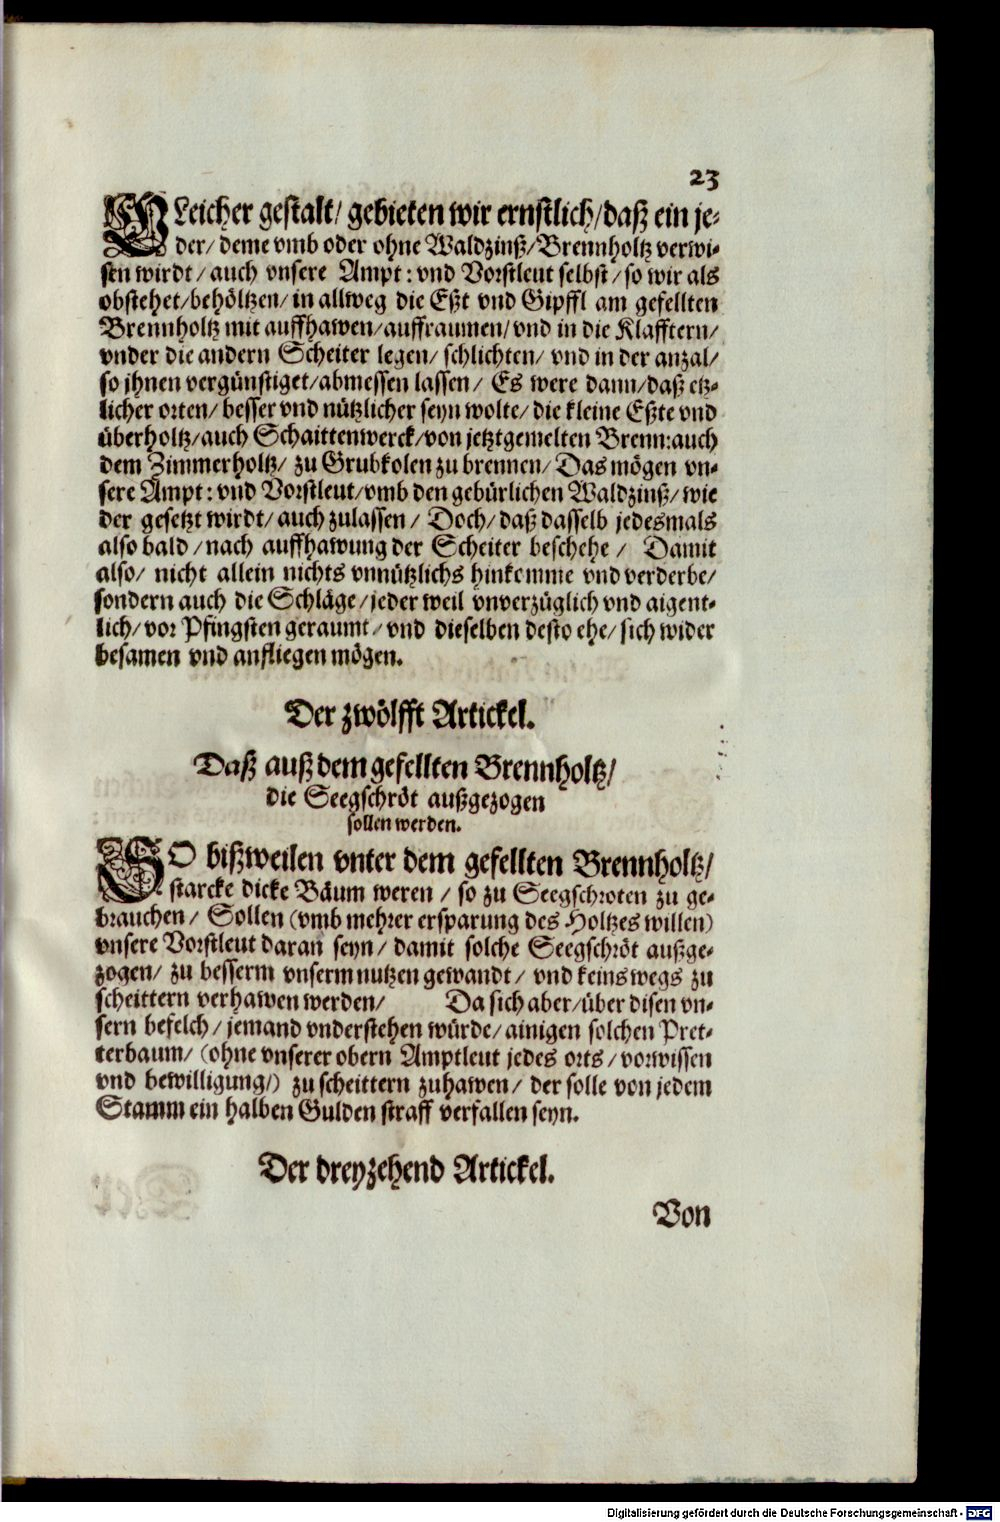 23
GLeicher gestalt/ gebieten wir ernstlich/daß ein je-
der/ deme vmb oder ohne Waldzinß/Brennholtz verwi-
sen wirdt/ auch vnsere Ampt: vnd Vorstleut selbst/ so wir als
obstehet/behöltzen/ in allweg die Eßt vnd Gipffl am gefellten
Brennholtz mit auffhawen/auffraumen/vnd in die Klafftern/
vnder die andern Scheiter legen/ schlichten/ vnd in der anzal/
so jhnen vergünstiget/abmessen lassen/ Es were dann/daß etz-
licher orten/ besser vnd nützlicher seyn wolte/ die kleine Eßte vnd
überholtz/auch Schaittenwerck/von jetztgemelten Brenn:auch
dem Zimmerholtz/ zu Grubkolen zu brennen/ Das mögen vn-
sere Ampt: vnd Vorstleut/vmb den gebürlichen Waldzinß/ wie
der gesetzt wirdt/ auch zulassen/ Doch/ daß dasselb jedesmals
also bald/ nach auffhawung der Scheiter beschehe/ Damit
also/ nicht allein nichts vnnützlichs hinkomme vnd verderbe/
sondern auch die Schläge/jeder weil vnverzüglich vnd aigent-
lich/ vor Pfingsten geraumt/ vnd dieselben desto ehe/ sich wider
besamen vnd anfliegen mögen.
Der zwölfft Artickel.
Daß auß dem gefellten Brennholtz/
die Seegschröt außgezogen
sollen werden.
SO bißweilen vnter dem gefellten Brennholtz/
starcke dicke Bäum weren/ so zu Seegschroten zu ge-
brauchen/ Sollen (vmb mehrer ersparung des Holtzes willen)
vnsere Vorstleut daran seyn/ damit solche Seegschröt außge-
zogen/ zu besserm vnserm nutzen gewandt/ vnd keins wegs zu
scheittern verhawen werden/ Da sich aber/über disen vn-
sern befelch/ jemand vnderstehen würde/ ainigen solchen Pret-
terbaum/ (ohne vnserer obern Amptleut jedes orts/ vorwissen
vnd bewilligung/) zu scheittern zuhawen/ der solle von jedem
Stamm ein halben Gulden straff verfallen seyn.
Der dreyzehend Artickel.
Von
Digitalisierung gefördert durch die Deutsche Forschungsgemeinschaft - DFG